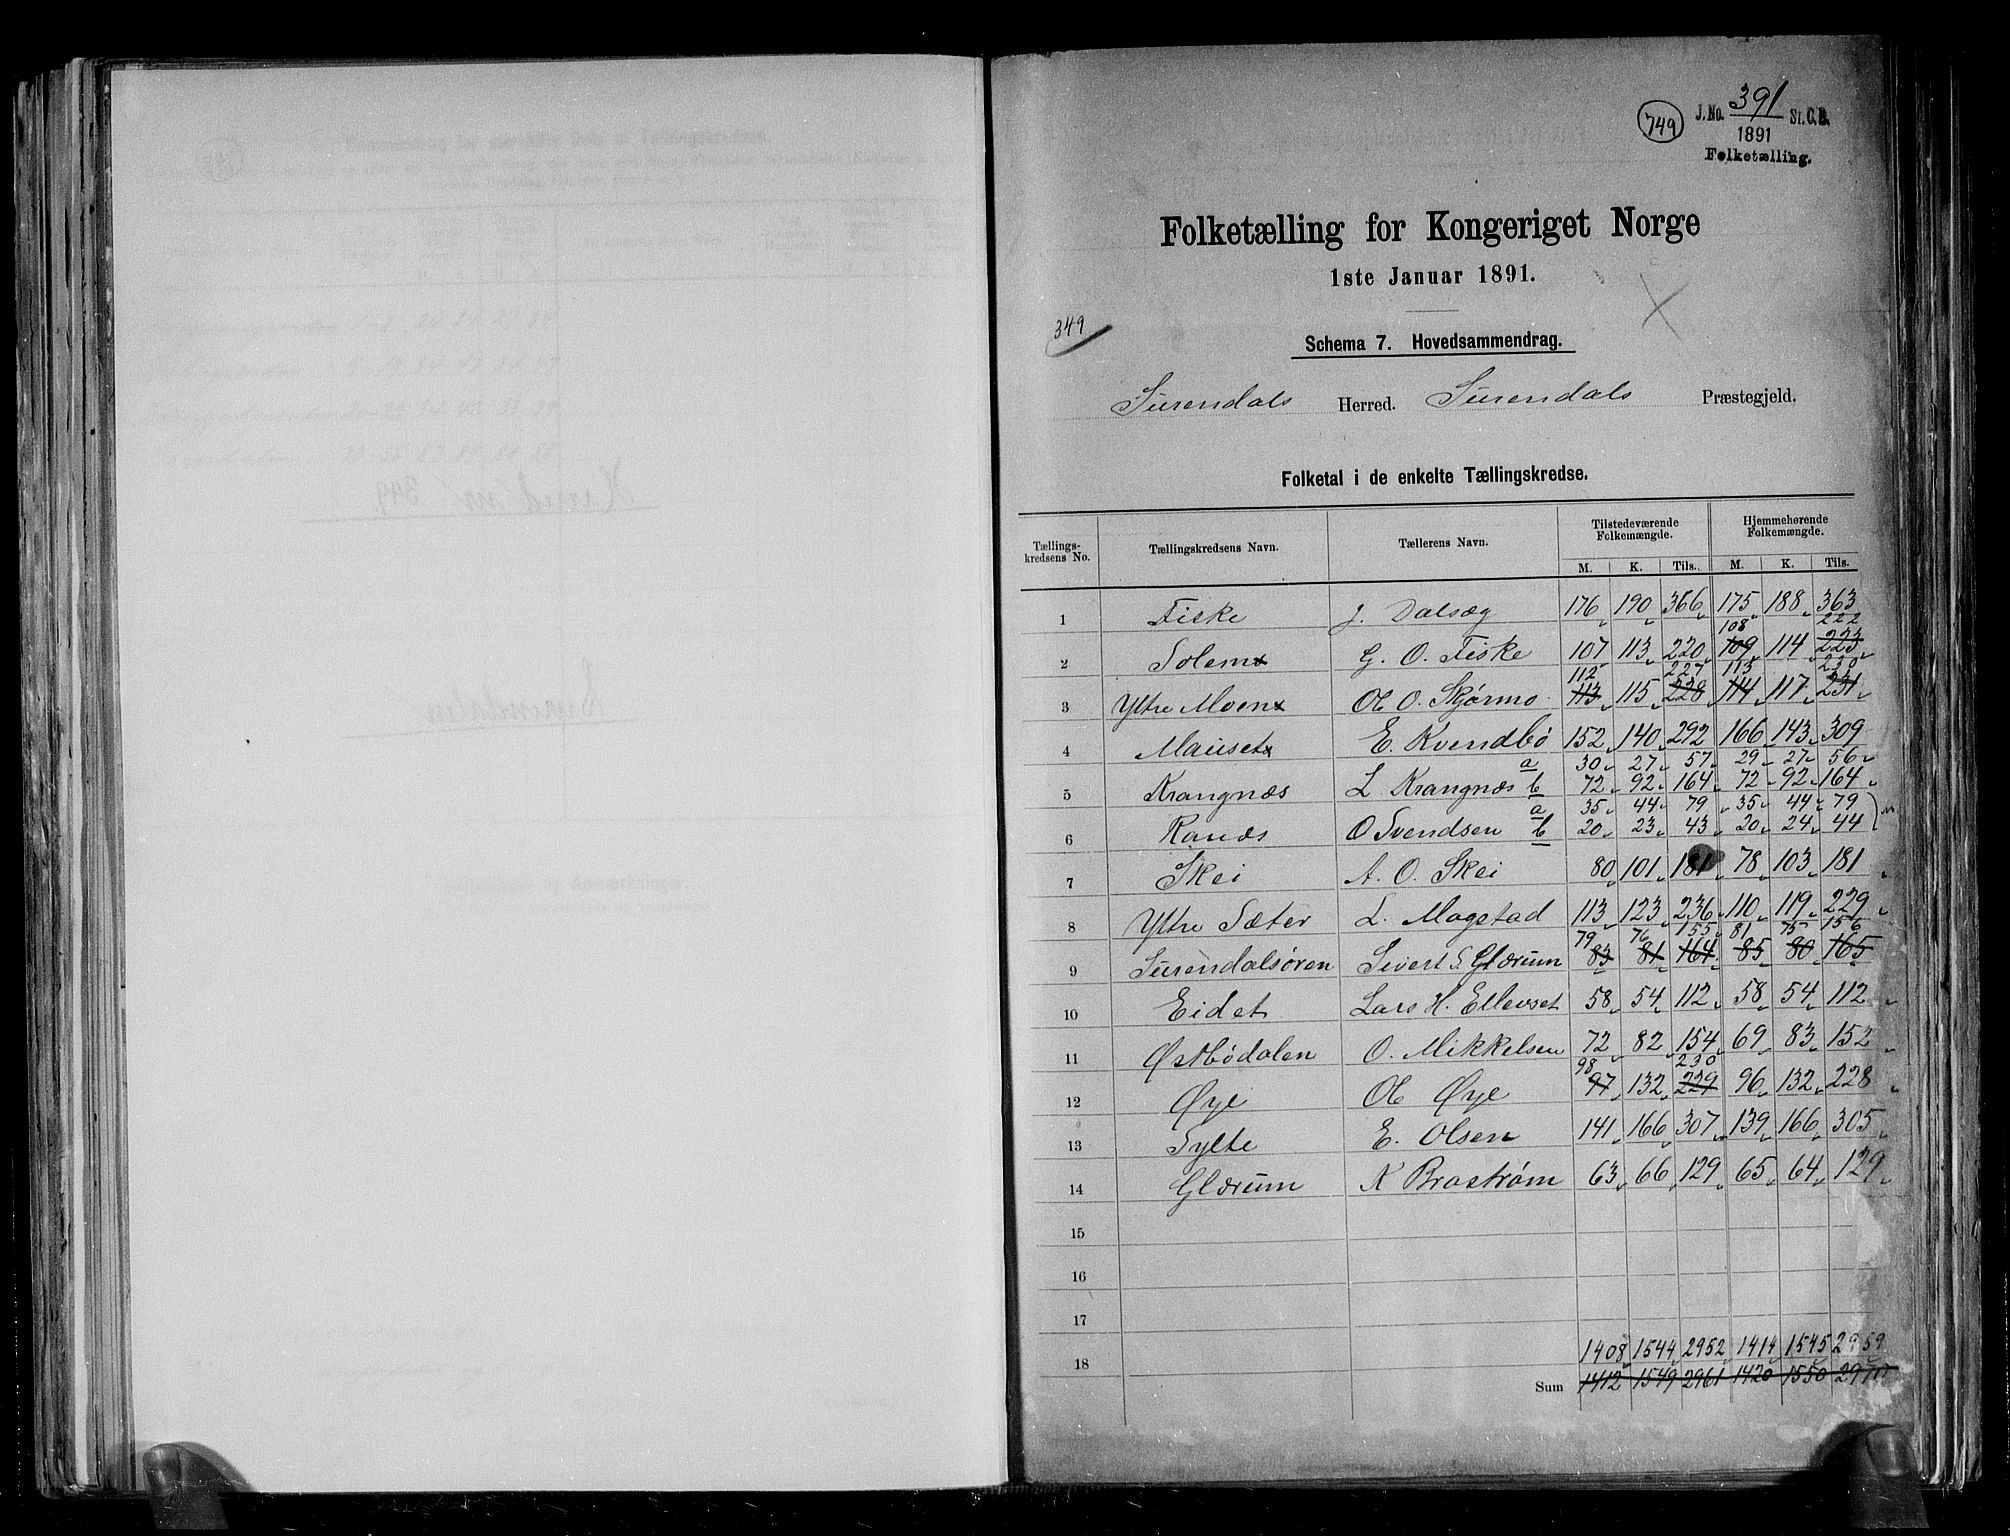 749
J. No. 391 St. C. B.
1891
Folketælling.
Folketælling for Kongeriget Norge
1ste Januar 1891.
349
Schema 7. Hovedsammendrag.
Surendals Herred. Surendals Præstegjeld.
Folketal i de enkelte Tællingskredse.
Tællings-kredsens No. Tællingskredsens Navn. Tællerens Navn. Tilstedeværende Folkemængde. Hjemmehørende Folkemængde.
M. K. Tils. M. K. Tils.
1 Fiske J. Dalsæg 176 190 366 175 188 363
108 222
2 Solem G. O. Fiske 107 113 220 109 114 223
112 227 113 230
3 Ytre Moen Ol O. Skjørmo 113 115 228 114 117 231
4 Mauset E. Kvendbø 152 140 292 166 143 309
a 30 27 57 29 27 56
5 Krangnæs L Krangnæs b 72 92 164 72 92 164
a 35 44 79 35 44 79
6 Ranæs O Svendsen b 20 23 43 20 24 44
7 Skei A. O. Skei 80 101 181 78 103 181
8 Ytre Sæter L. Mogstad 113 123 236 110 119 229
79 76 155 81 75 156
9 Surendalsøren Sivert S. Glærum 83 81 164 85 80 165
10 Eidet Lars H. Ellevset 58 54 112 58 54 112
11 Østbødalen O. Mikkelsen 72 82 154 69 83 152
98 230
12 Øye Ol Øye 97 132 229 96 132 228
13 Sylte E. Olsen 141 166 307 139 166 305
14 Glærum K Brastrøm 63 66 129 65 64 129
15
16
17
1408 1544 2952 1414 1545 2959
18
Sum 1412 1549 2961 1420 1550 2970